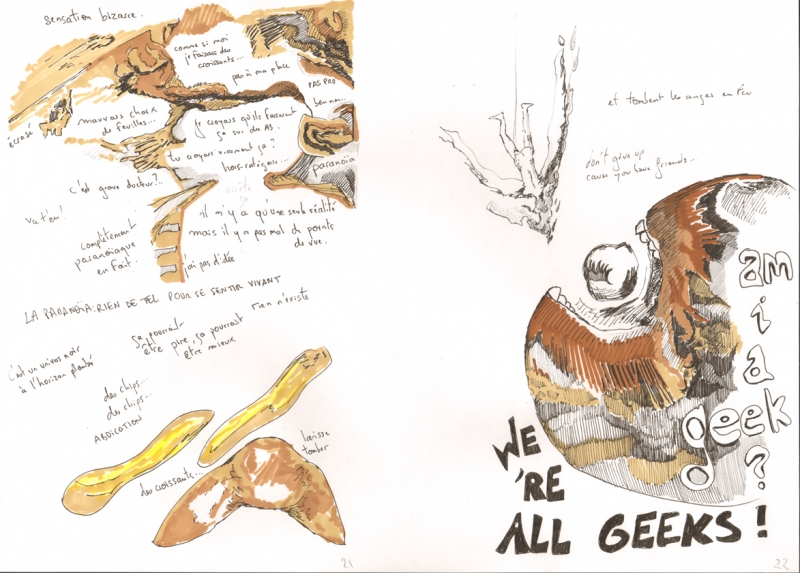 sensation bizarre...
comme si moi
je faisais des
croissants...
pas à ma place
PAS PRO
ben no...
écrasé
mauvais choix
de feuilles...
je croyais qu'ils faisaient
ça sur du A3...
tu croyais vraiment ça ?
hors-catégorie...
paranoïa
c'est grave docteur ?..
va t'en !
complètement
paranoïaque
en fait.
il n'y a qu'une seule réalité
mais il y a pas mal de points
de vue.
j'ai pas d'idée
LA PARANOÏA: RIEN DE TEL POUR SE SENTIR VIVANT
rien n'existe
ça pourrait
être pire, ça pourrait
être mieux
c'est un univers noir
à l'horizon
des chips...
des chips...
ABDICATION
des croissants...
laisse
tomber
21
et tombent les anges en feu
don't give up
cause you have friends...
am
i
a
geek
?
WE
'RE
ALL GEEKS !
22